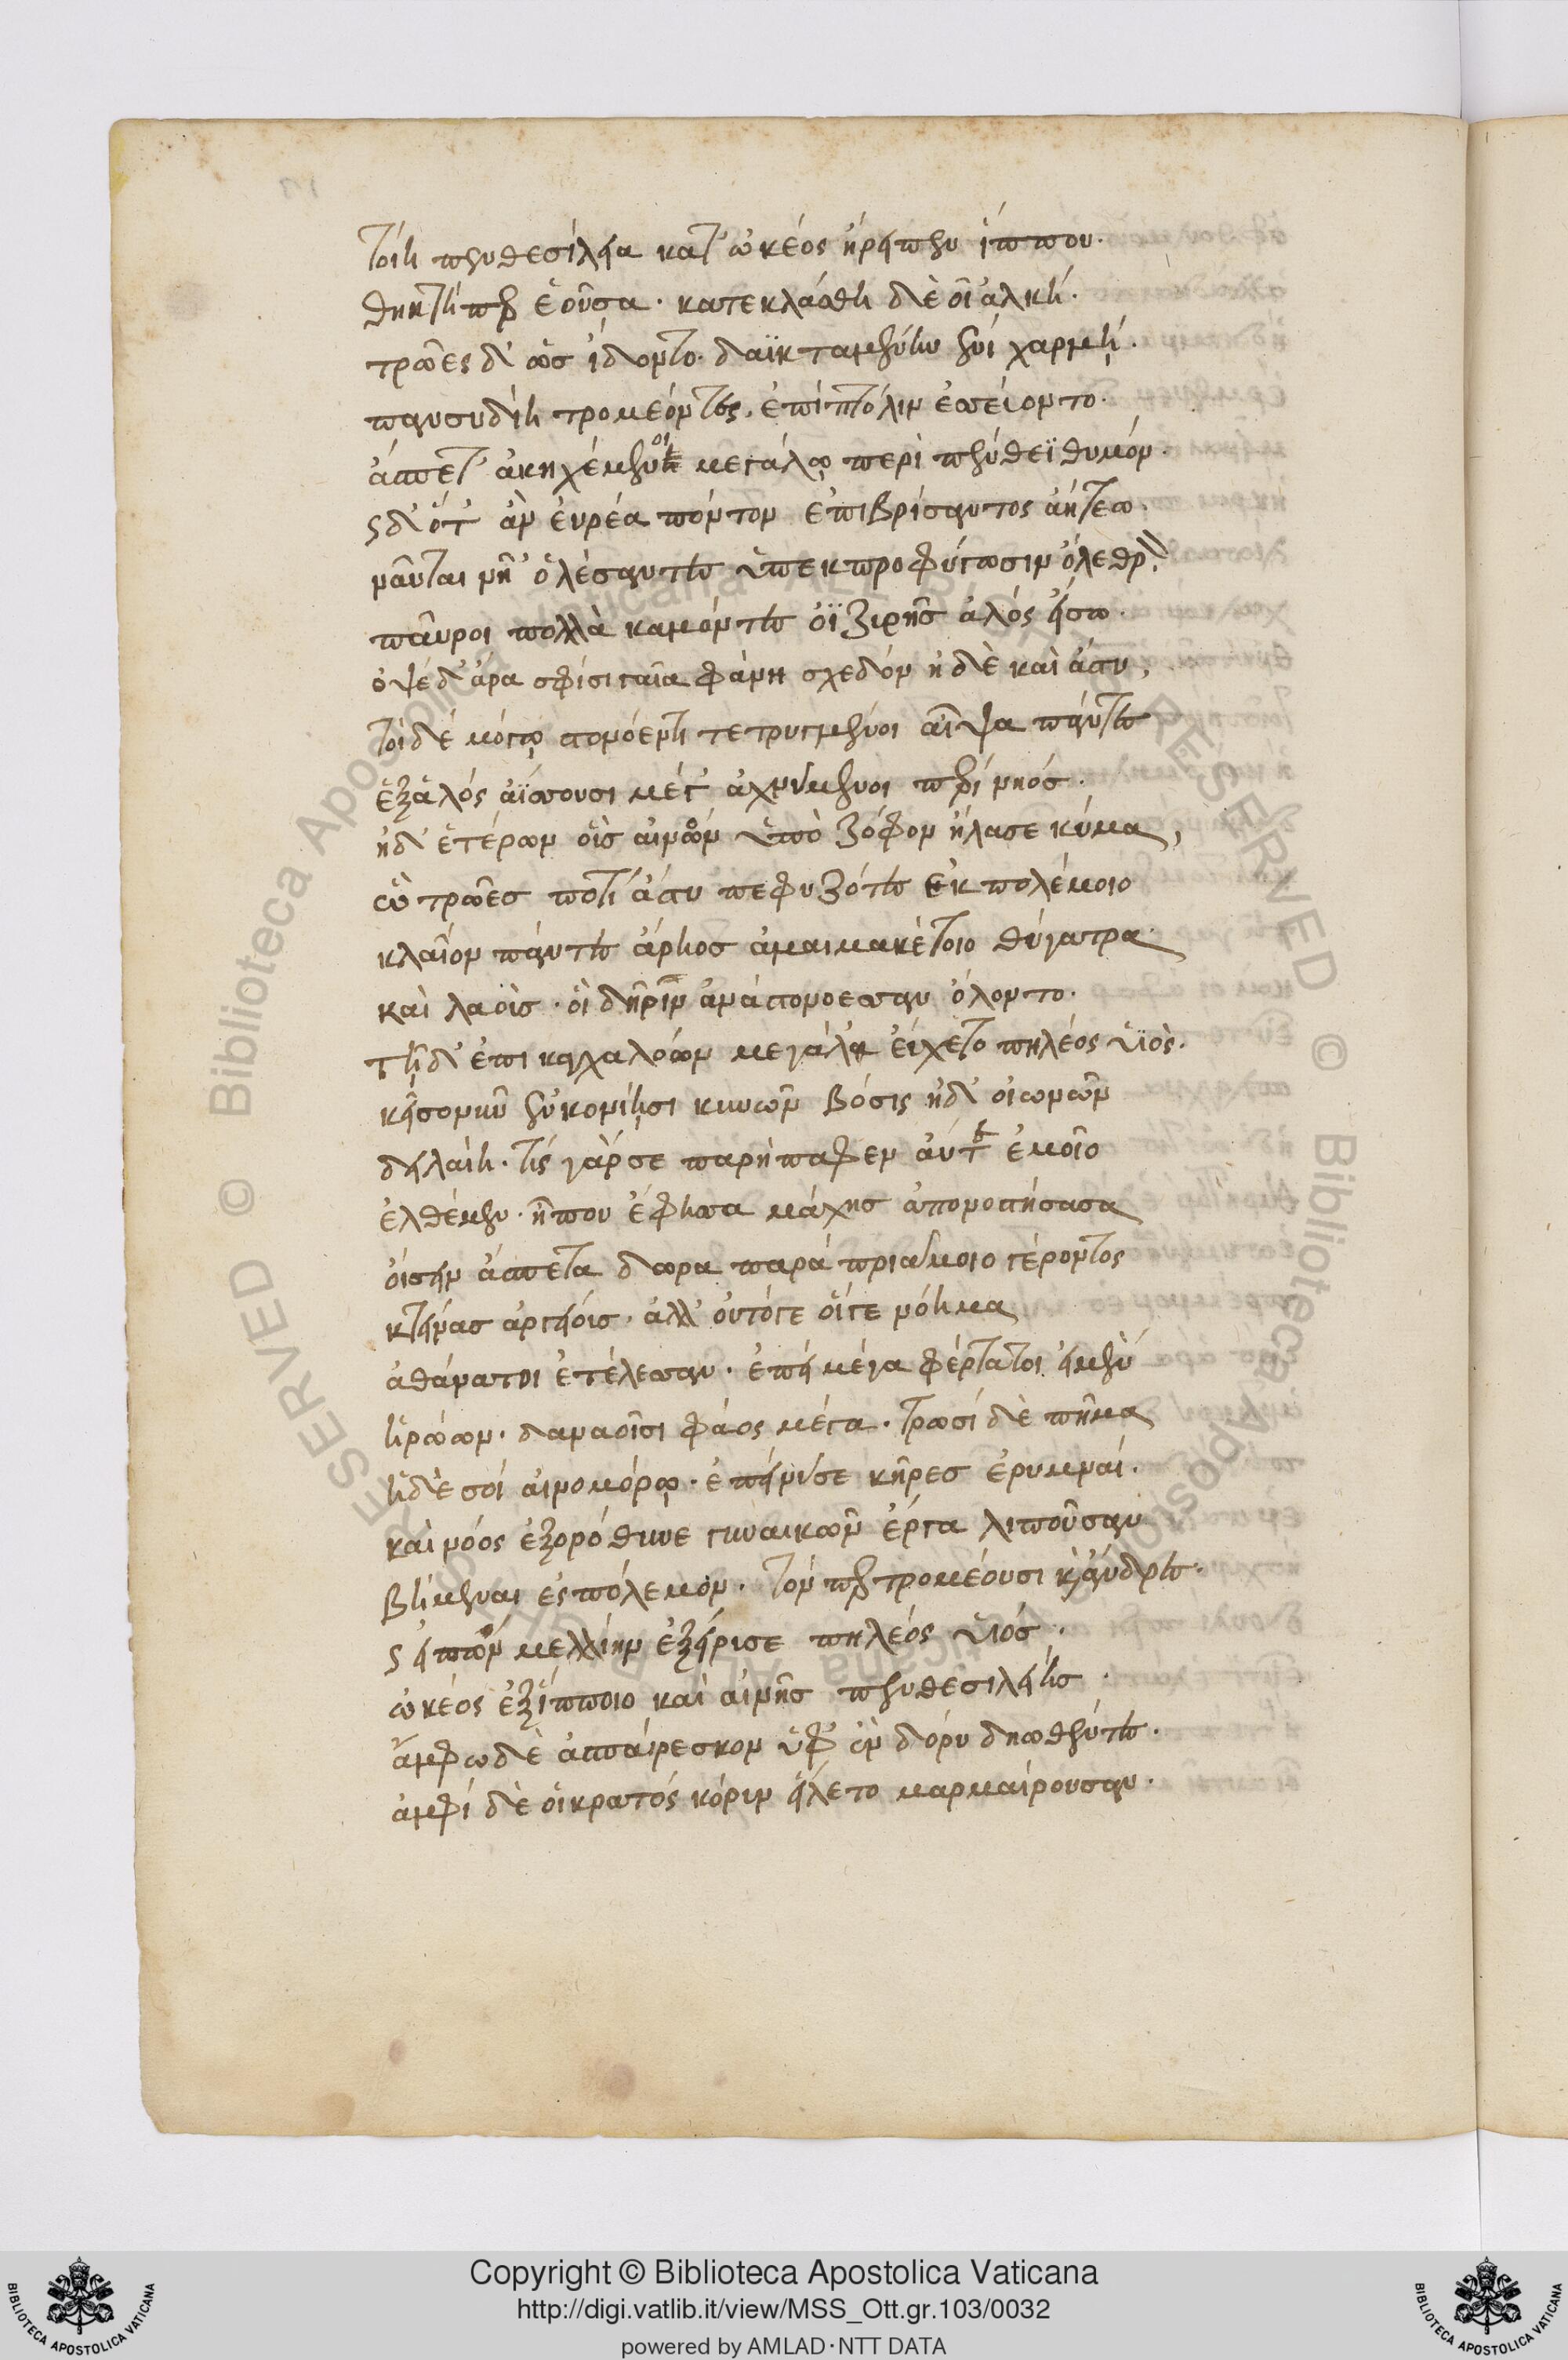 τοίη πενθεσίλεια κατ' ὠκέος ἤρειπεν ἵππου·
θηκτὴ περ ἐοῦσα· κατεκλάσθη δὲ οἱ ἀλκή·
τρῶες δ' ὡς ἴδοντο· δαϊκταμένην ἐνὶ χάρμῃ·
πανσυδίη τρομέοντες, ἐπὶ πτόλιν ἐσσείοντο·
ἄσπετ' ἀκηχέμενοι μεγάλῳ περὶ πένθεϊ θυμόν·
ὡς δ' ὅτ' ἂν εὐρέα πόντον ἐπιβρίσαντος ἀήτεω·
ναῦται νῆ' ὀλέσαντες ὑπεκπροφύγωσιν ὄλεθρον
παῦροι πολλὰ καμόντες ὀϊζιρῆς ἁλός εἴσω·
ὀψέ δ' ἄρα σφίσι γαῖα φάνη σχεδόν ἠδὲ καὶ ἄστυ,
τοὶ δέ μόγῳ στονόεντι τετρυγμένοι αἶψα πάντες
ἐξ ἁλός ἀΐσσουσι μέγ' ἀχνύμενοι περί νηός·
ἠδ' ἑτέρων οἷς αἰνῶν ὑπὸ ζόφον ἤλασε κύμα,
ὣς τρῶες ποτὶ ἄστυ πεφυζότες ἐκ πολέμοιο
κλαῖον πάντες ἄρηος ἀμαιμακέτοιο θύγατρα·
καὶ λαοὶς· οἱ δῆριν ἀνάστονοεσσαν ὄλοντο·
τῇ δ' ἐπι καγχαλόων μεγάλα εὔχετο πηλέος υἱὸς·
κεῖσο νῦν ἐν κονίῃσι κυνῶν βόσις ἠδ' οἰωνῶν
δειλαίη· τίς γάρ σε παρήπαφεν ἄντα ἐμοῖο
ἐλθέμεν· ἦ που ἔφησθα μάχης ἀπονοστήσασα
οἴσειν ἄσπετα δωρα παρά πριάμοιο γέροντος
κτείνασ' ἀργείοις· ἀλλ' οὐ τό γε οἵ γε νόημα
ἀθάνατοι ἐτέλεσσαν· ἐπεὶ μέγα φέρτατοι εἰμὲν
ἡρώων· δαναοῖσι φάος μέγα· τρωσὶ δὲ πῆμα
ἠδὲ σοὶ αἰνομόρῳ· ἐπεί νύ σε κῆρες ἐρυμναί·
καὶ νόος ἐξορόθυνε γυναικῶν ἔργα λιποῦσαν
βήμεναι ἐς πόλεμον· τόν περ τρομέουσι κ' ἄνδρες·
ὣς εἰπὼν μελλίην ἐξείρισε πηλέος υἱός·
ὠκέος ἐξ ἵπποιο καὶ αἰνῆς πενθεσιλείης·
ἄμφω δὲ ἀσπαίρεσκον ὑφ' ἓν δόρυ δηωθέντες·
ἀμφί δὲ οἱ κρατός κόριν εἵλετο μαρμαίρουσαν·
Copyright © Biblioteca Apostolica Vaticana
http://digi.vatlib.it/view/MSS_Ott.gr.103/0032
powered by AMLAD·NTT DATA